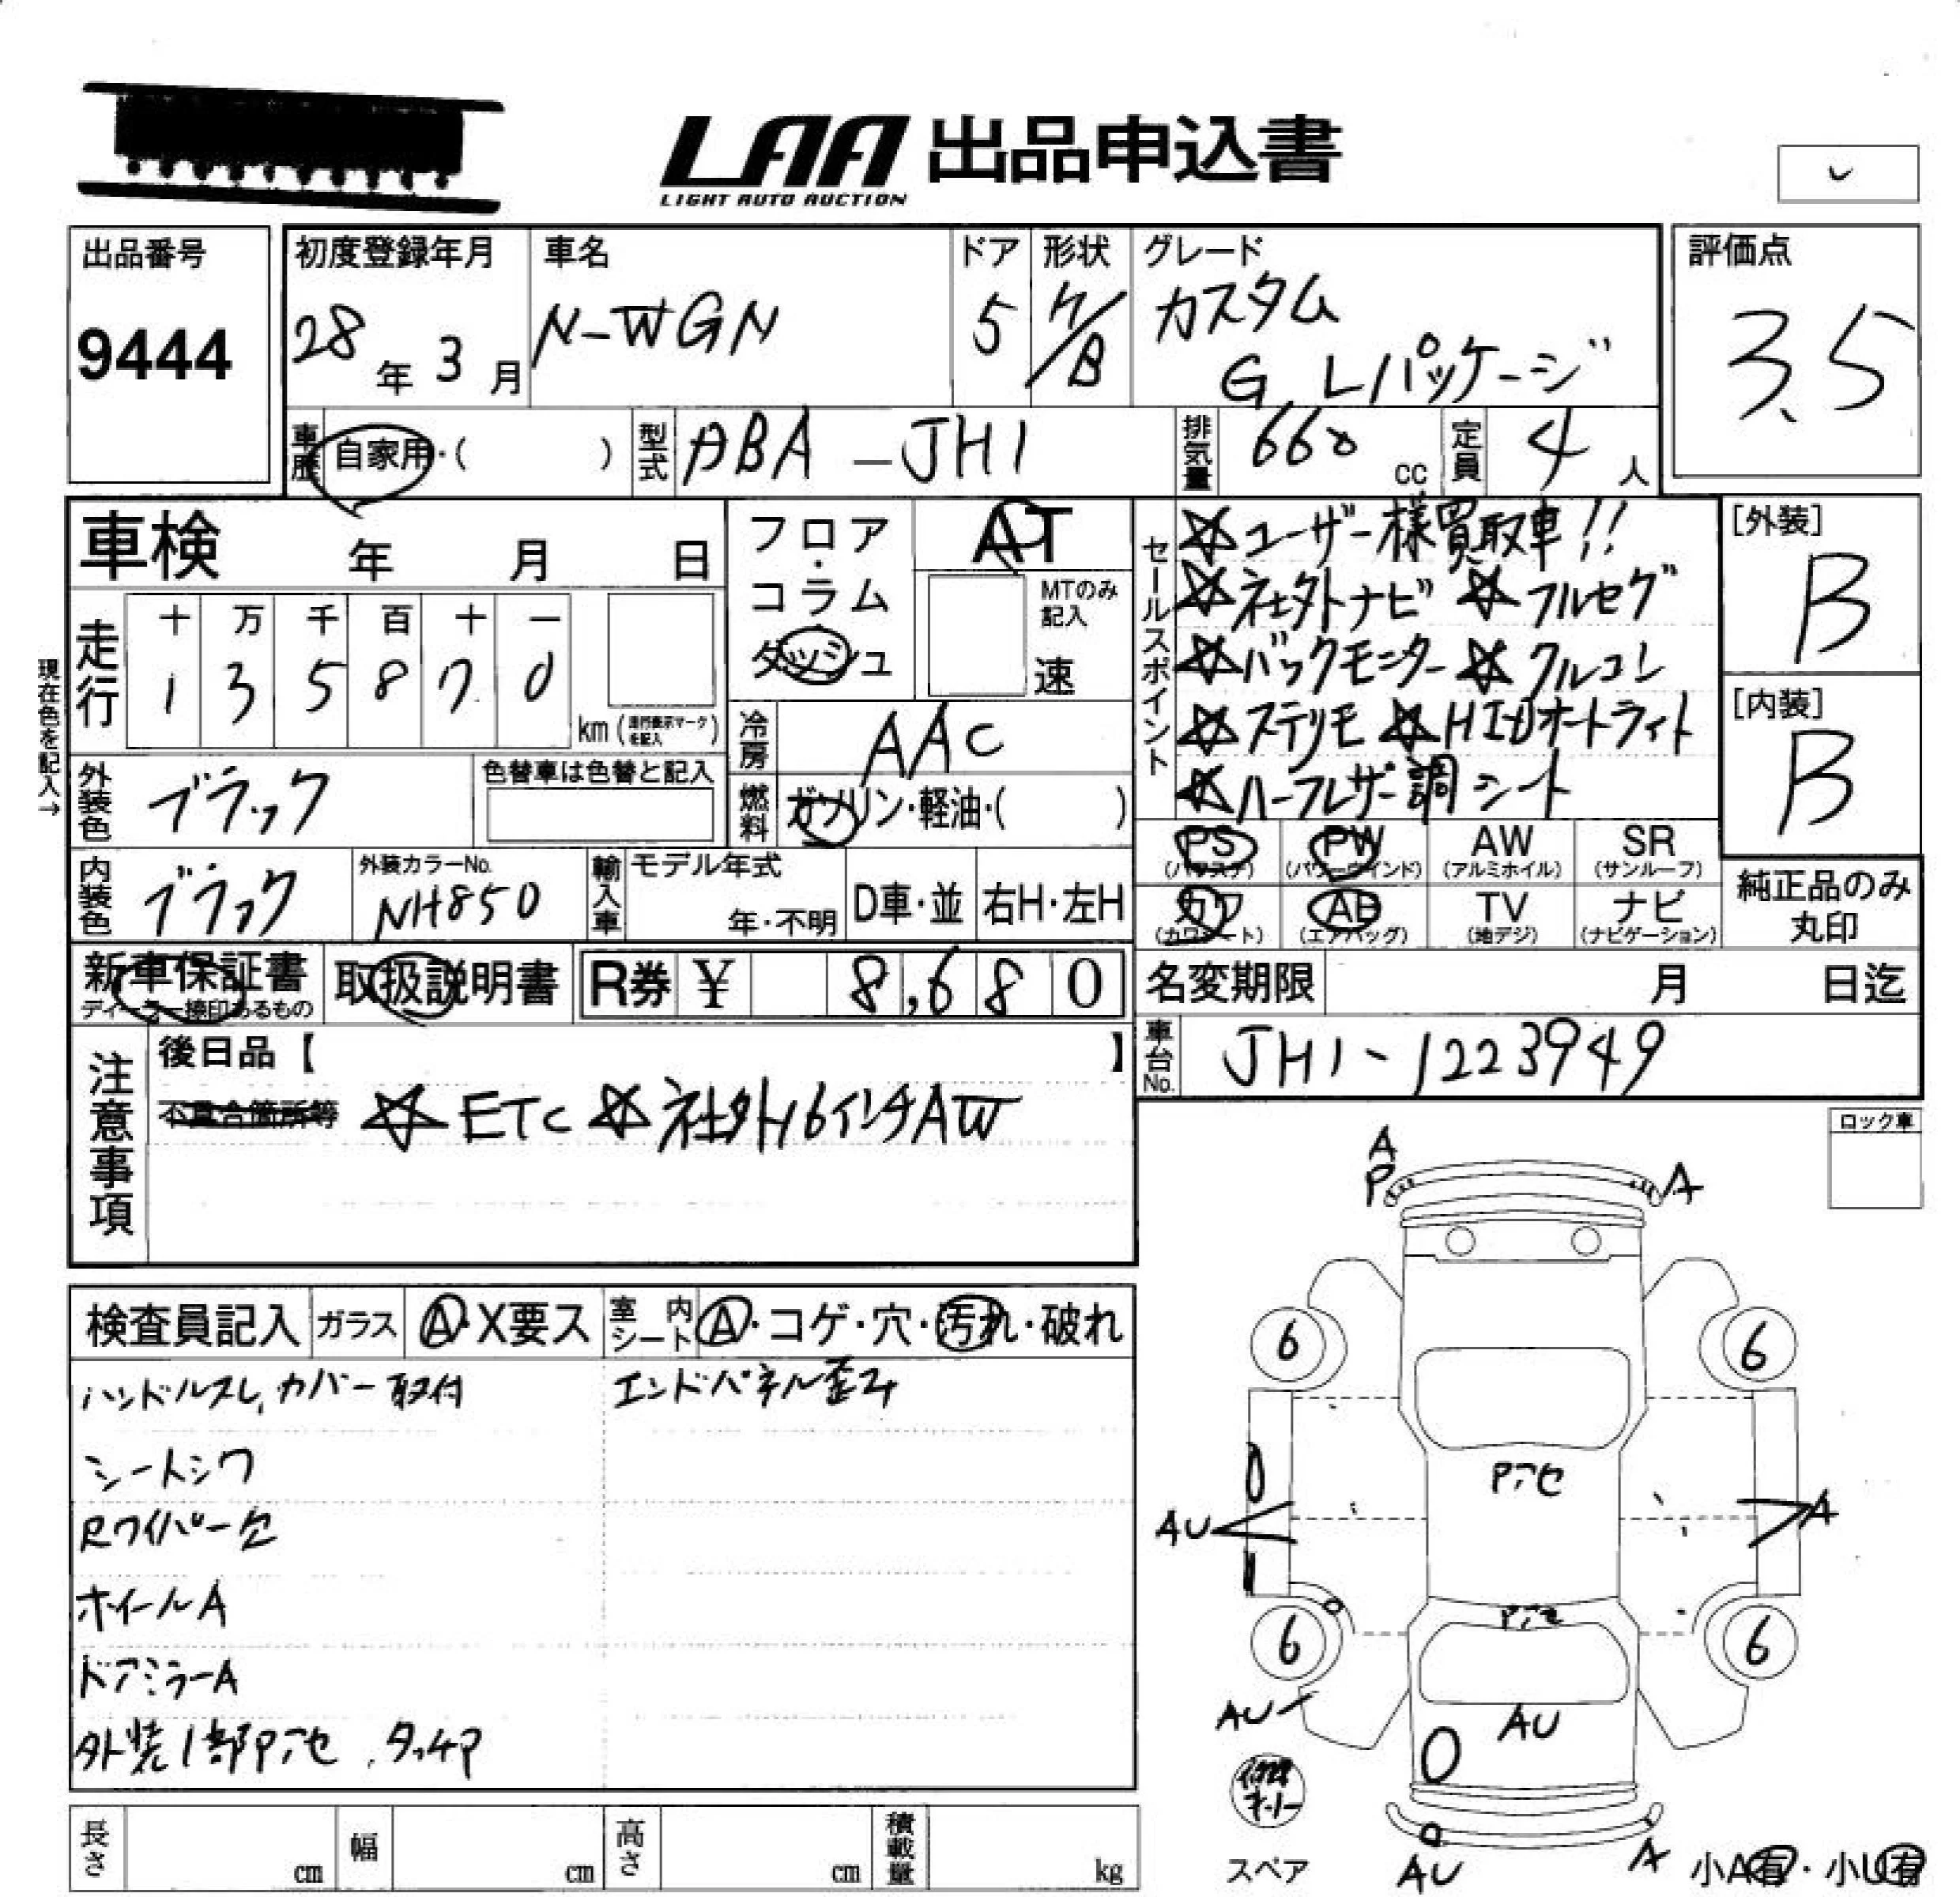 LAA 出品申込書
LIGHT AUTO AUCTION
出品番号
9444
初度登録年月
28年3月
車名
N-WGN
ドア
5
形状
H/B
グレード
カスタム
G Lパッケージ
評価点
3.5
車歴
自家用・( )
型式
ABA-JH1
排気量
660 cc
定員
4人
車検 年 月 日
フロア・コラム
ダッシュ
AT
MTのみ記入
速
現在色を記入→
走行
十 万 千 百 十 一
1 3 5 8 7 0
km (走行表示マークを記入)
冷房
AAC
外装色
ブラック
色替車は色替と記入
燃料
ガソリン・軽油・( )
内装色
ブラック
外装カラーNo.
NH850
輸入車
モデル年式
年・不明
D車・並
右H・左H
セールスポイント
☆ユーザー様買取車!!
☆社外ナビ ☆フルセグ
☆バックモニター ☆クルコン
☆ステリモ ☆HIDオートライト
☆ハーフレザー調シート
[外装]
B
[内装]
B
PS (パワステ)
PW (パワーウインド)
AW (アルミホイル)
SR (サンルーフ)
カワ (カワシート)
AB (エアバッグ)
TV (地デジ)
ナビ (ナビゲーション)
純正品のみ丸印
新車保証書
ディーラー捺印あるもの
取扱説明書
R券 ¥ 8,680
名変期限 月 日迄
車台No.
JH1-1223949
注意事項
後日品【 】
不具合箇所等
☆ETC ☆社外16インチAW
ロック車
検査員記入
ガラス
A・X要ス
室内シート
A・コゲ・穴・汚れ・破れ
ハンドルスレ,カバー取付
エンドパネル歪み
シートシワ
Rワイパー欠
ホイールA
ドアミラーA
外装1部P、アセ、タッチP
A
P
A
6
6
Pアセ
AU
A
Pアセ
6
6
AU
AU
修理キット
スペア
AU
A
小A有・小U有
長さ cm
幅 cm
高さ cm
積載量 kg